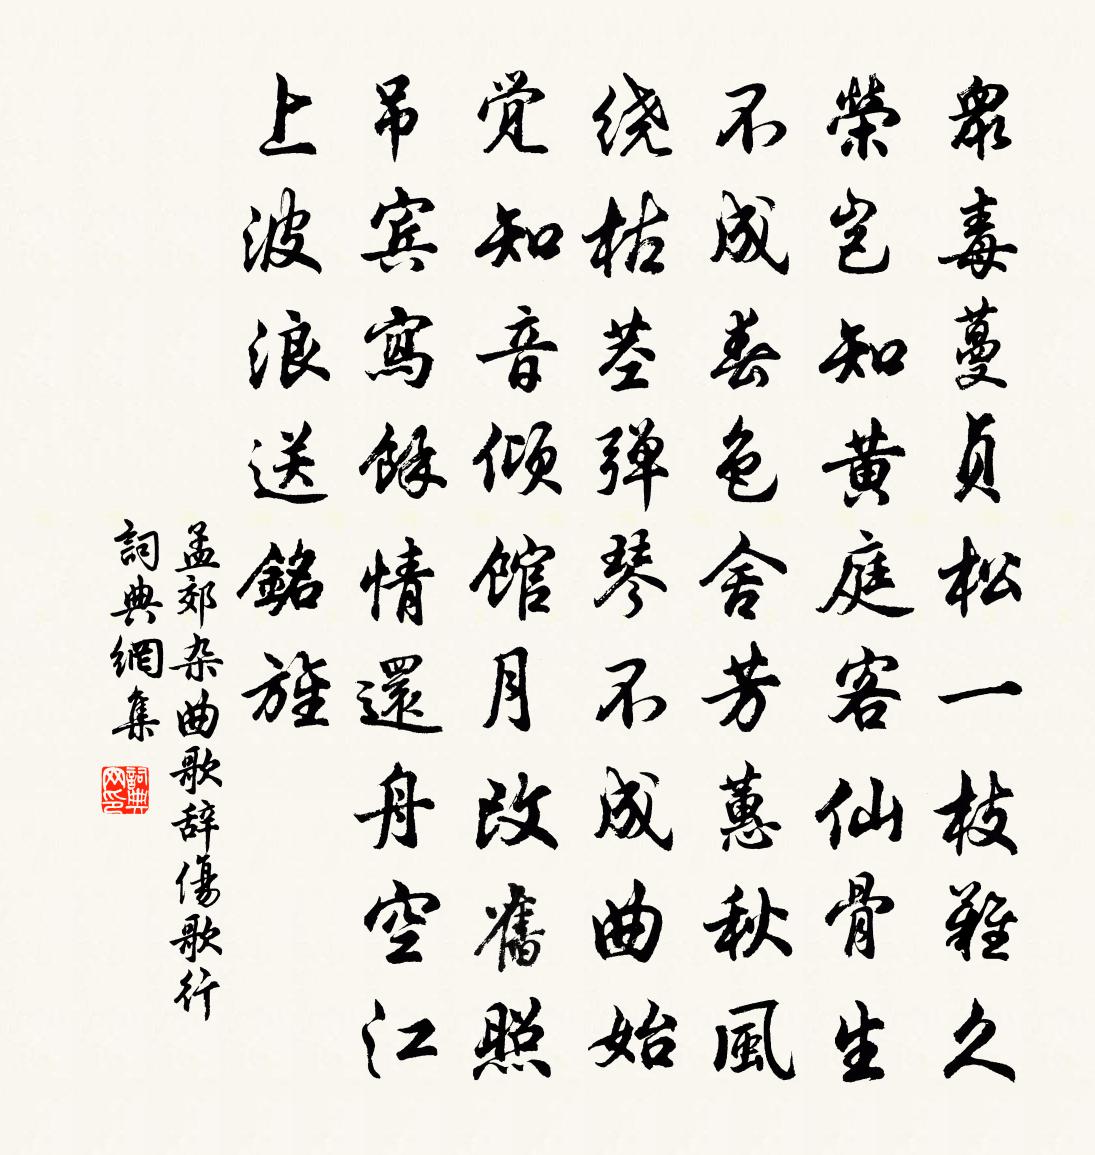 眾毒蔓貞松一枝難久
榮豈知黃庭客仙骨生
不成春色舍芳蕙秋風
绕枯莖弹琴不成曲始
觉知音倾馆月改舊照
吊宾寫餘情還舟空江
上波浪送銘旌
孟郊杂曲歌辞傷歌行
詞典網集
詞典网印